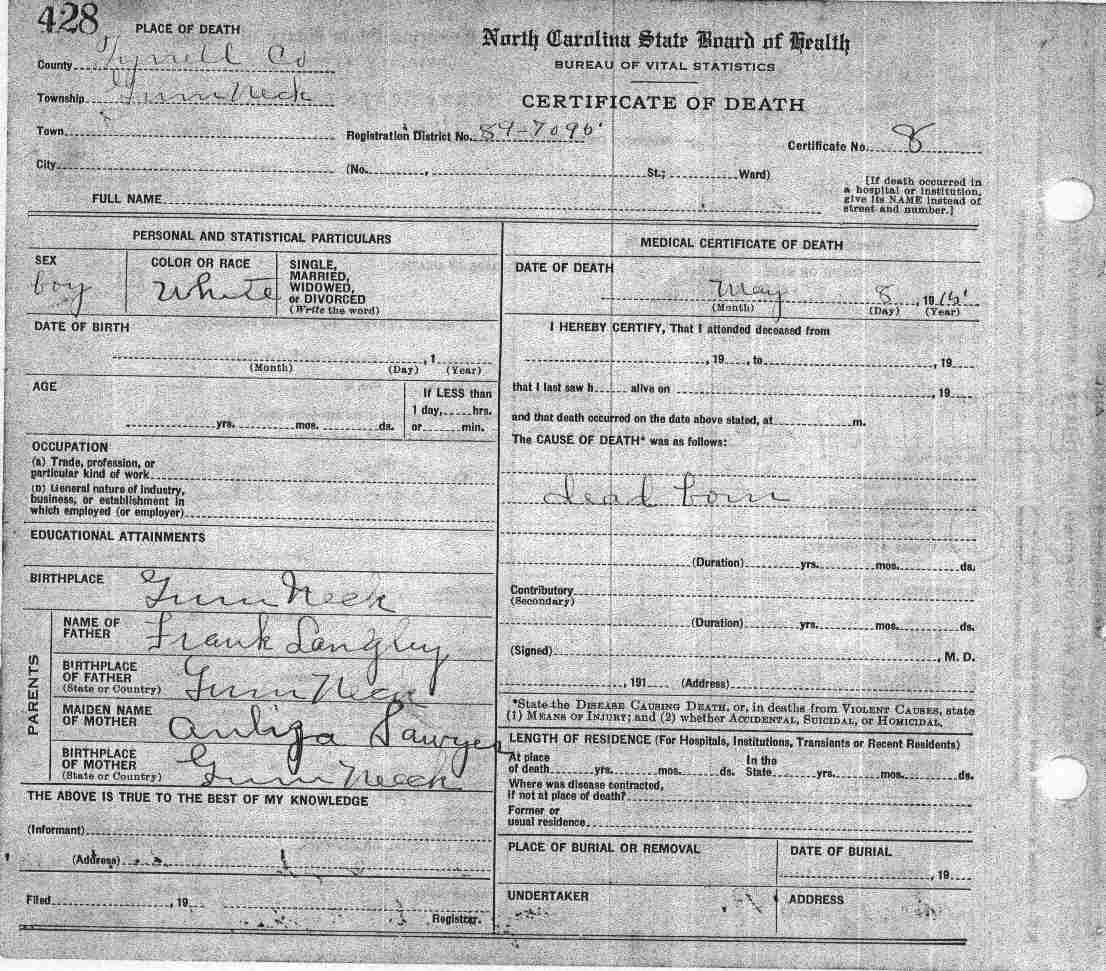 428
PLACE OF DEATH
County Tyrrell Co
Township Gum Neck
Town
City
North Carolina State Board of Health
BUREAU OF VITAL STATISTICS
CERTIFICATE OF DEATH
Registration District No. 89-7096
Certificate No. 8
(No. , St.; Ward)
[If death occurred in
a hospital or institution,
give its NAME instead of
street and number.]
FULL NAME
PERSONAL AND STATISTICAL PARTICULARS
SEX
boy
COLOR OR RACE
White
SINGLE,
MARRIED,
WIDOWED,
or DIVORCED
(Write the word)
DATE OF BIRTH
, 1
(Month) (Day) (Year)
AGE
yrs. mos. ds.
If LESS than
1 day, hrs.
or min.
OCCUPATION
(a) Trade, profession, or
particular kind of work
(b) General nature of industry,
business, or establishment in
which employed (or employer)
EDUCATIONAL ATTAINMENTS
BIRTHPLACE Gum Neck
PARENTS
NAME OF
FATHER Frank Langley
BIRTHPLACE
OF FATHER
(State or Country) Gum Neck
MAIDEN NAME
OF MOTHER Sawyer
BIRTHPLACE
OF MOTHER
(State or Country) Gum Neck
THE ABOVE IS TRUE TO THE BEST OF MY KNOWLEDGE
(Informant)
(Address)
Filed , 19
Registrar.
MEDICAL CERTIFICATE OF DEATH
DATE OF DEATH
May 8 , 191
(Month) (Day) (Year)
I HEREBY CERTIFY, That I attended deceased from
, 19 , to , 19
that I last saw h alive on , 19
and that death occurred on the date above stated, at m.
The CAUSE OF DEATH* was as follows:
dead born
(Duration) yrs. mos. ds.
Contributory
(Secondary)
(Duration) yrs. mos. ds.
(Signed) , M. D.
, 191 (Address)
*State the DISEASE CAUSING DEATH, or, in deaths from VIOLENT CAUSES, state
(1) MEANS OF INJURY; and (2) whether ACCIDENTAL, SUICIDAL, or HOMICIDAL.
LENGTH OF RESIDENCE (For Hospitals, Institutions, Transients or Recent Residents)
At place In the
of death yrs. mos. ds. State yrs. mos. ds.
Where was disease contracted,
if not at place of death?
Former or
usual residence
PLACE OF BURIAL OR REMOVAL
DATE OF BURIAL
, 19
UNDERTAKER
ADDRESS